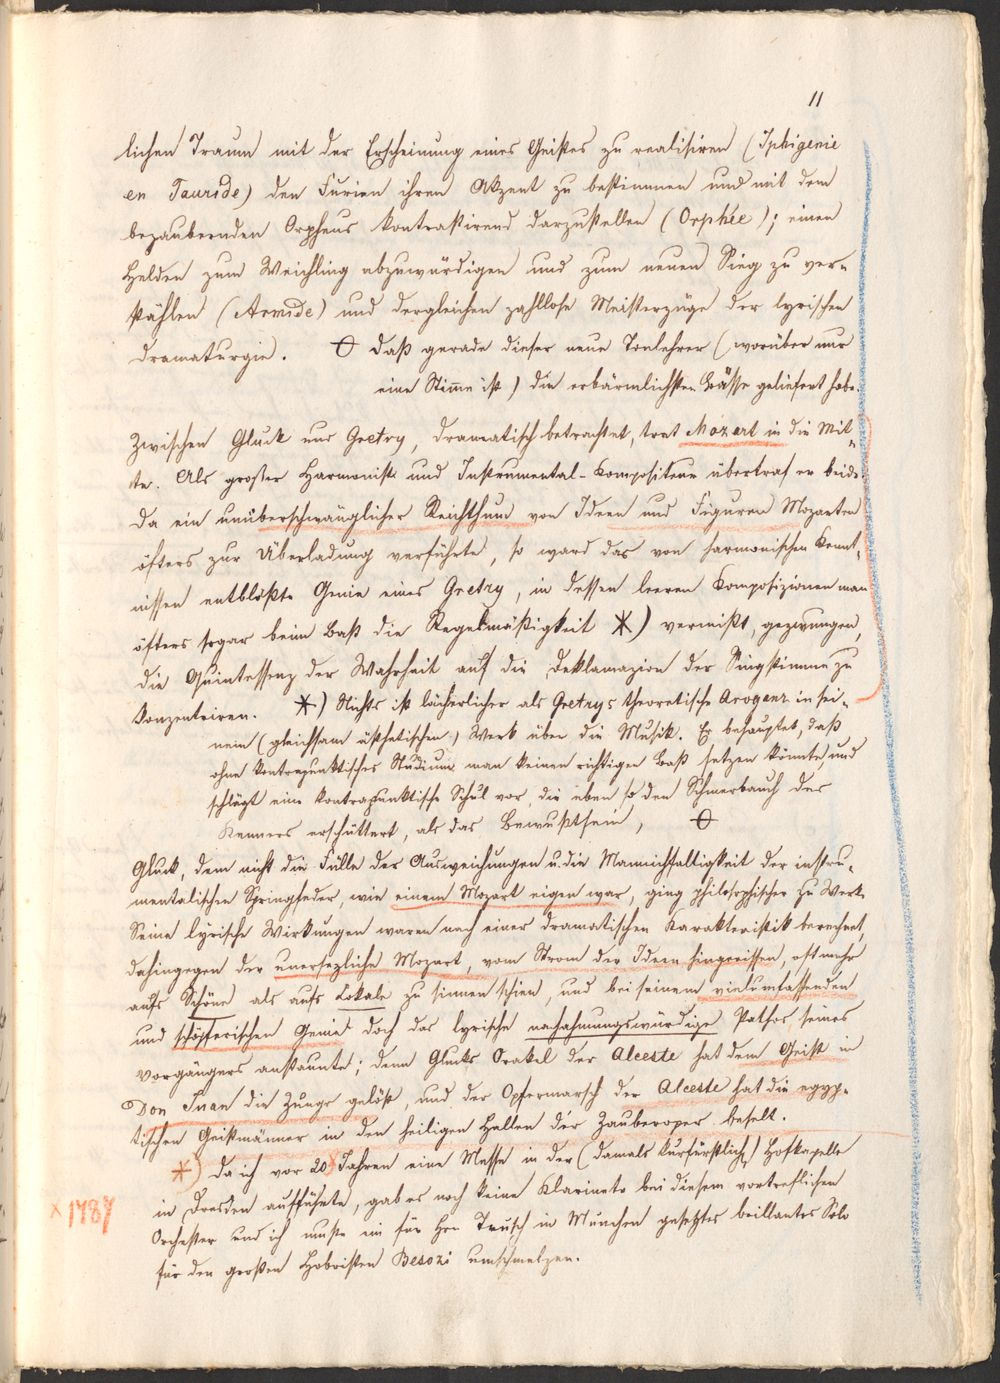 11
lichen Traum mit der Erscheinung eines Geistes zu realisiren (Iphigenie
en Tauride) den Furien ihren Akzent zu bestimmen und mit dem
bezaubernden Orpheus kontrastirend darzustellen (Orphée); einen
Helden zum Weichling abzuwürdigen und zum neuen Sieg zu ver-
stählen (Armide) und dergleichen zahllose Meisterzüge der lyrischen
Dramaturgie. ϴ daß gerade dieser neue Tonlehrer (worüber nur
eine Stimme ist) die erbärmlichsten Bässe geliefert habe.
Zwischen Gluck und Gretry, dramatisch betrachtet, trat Mozart in die Mit-
te. Als großer Harmonist und Instrumental-Kompositeur übertraf er beide.
Da ein unüberschwänglicher Reichthum von Ideen und Figuren Mozarten
öfters zur Überladung verführte, so ward das von harmonischen Kennt-
nissen entblößte Genie eines Gretry, in dessen leeren Komposizionen man
öfters sogar beim Baß die Regelmäßigkeit *) vermißt, gezwungen,
die Quintessenz der Wahrheit auf die Deklamazion der Singstimme zu
konzentriren. *) Nichts ist lächerlicher als Gretrys theoretische Aroganz in sei-
nem (gleichsam ästhetischen) Werk über die Musik. Er behauptet, daß
ohne kontrapunktisches Studium man keinen richtigen Baß setzen könnte, und
schlägt eine kontrapunktische Schul vor, die eben so den Schmerbauch des
Kenners erschüttert, als das Bewußtsein, ϴ
Gluck, dem nicht die Fülle der Ausweichungen u. die Mannichfaltigkeit der instru-
mentalischen Springfeder, wie einem Mozart eigen war, ging philosophischer zu Werk.
Seine lyrische Wirkungen waren nach einer dramatischen Karakteristik berechnet,
dahingegen der unersezliche Mozart, vom Strom der Ideen hingerissen, oft mehr
aufs Schöne als aufs Lokale zu sinnen schien, und bei seinem vielumfassenden
und schöpferischen Genie doch das lyrische nachahmungswürdige Pathos seines
Vorgängers anstaunte; denn Glucks Orakel der Alceste hat dem Geist in
Don Juan die Zunge gelößt, und der Opfermarsch der Alceste hat die egyp-
tischen Geistmänner in den heiligen Hallen der Zauberoper beselt.
*) Da ich vor 20 Jahren eine Messe in der (damals kurfürstlich) Hofkapelle
x 1787 in Dresden aufführte, gab es noch keine Klarinete bei diesem vortreflichen
Orchester und ich muste ein für Hr. Tausch in München gesetztes brillantes Solo
für den großen Hoboisten Besozi umschmelzen.